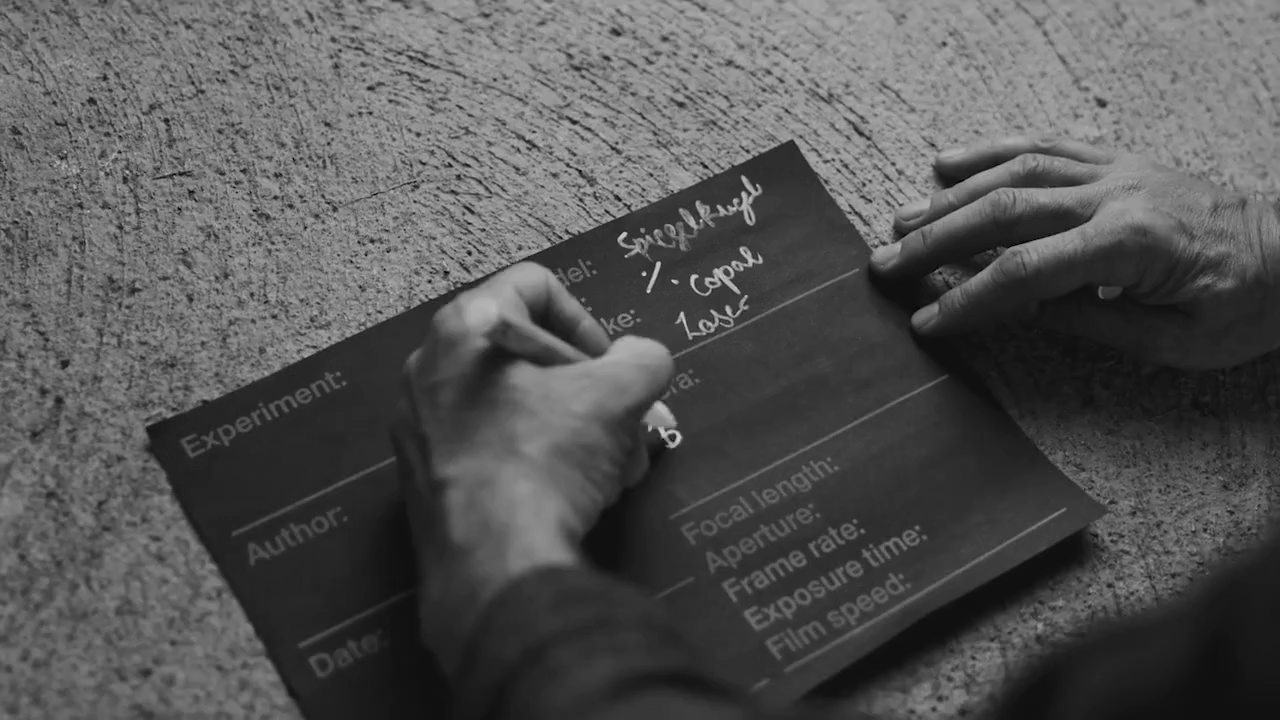 Experiment:
Author:
Date:
del: Spiegelkugl
: %. copal
ke: Laser
ra:
b
Focal length:
Aperture:
Frame rate:
Exposure time:
Film speed: